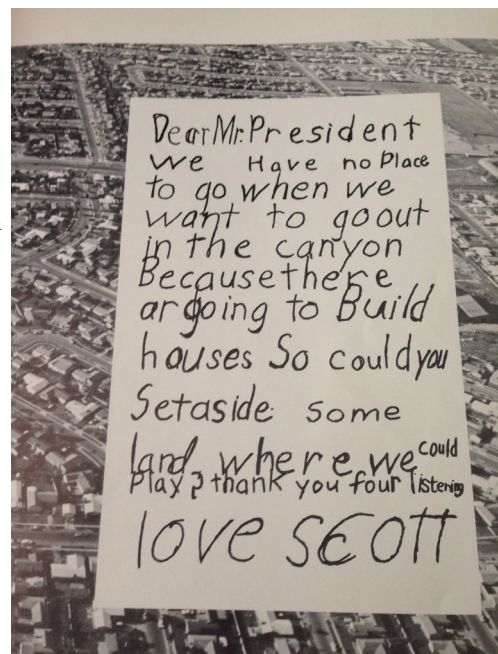 Dear Mr. President
we Have no Place
to go when we
want to go out
in the canyon
Because there
ar going to Build
houses So could you
Set aside some
land where we could
Play? thank you four listening
love SCOTT